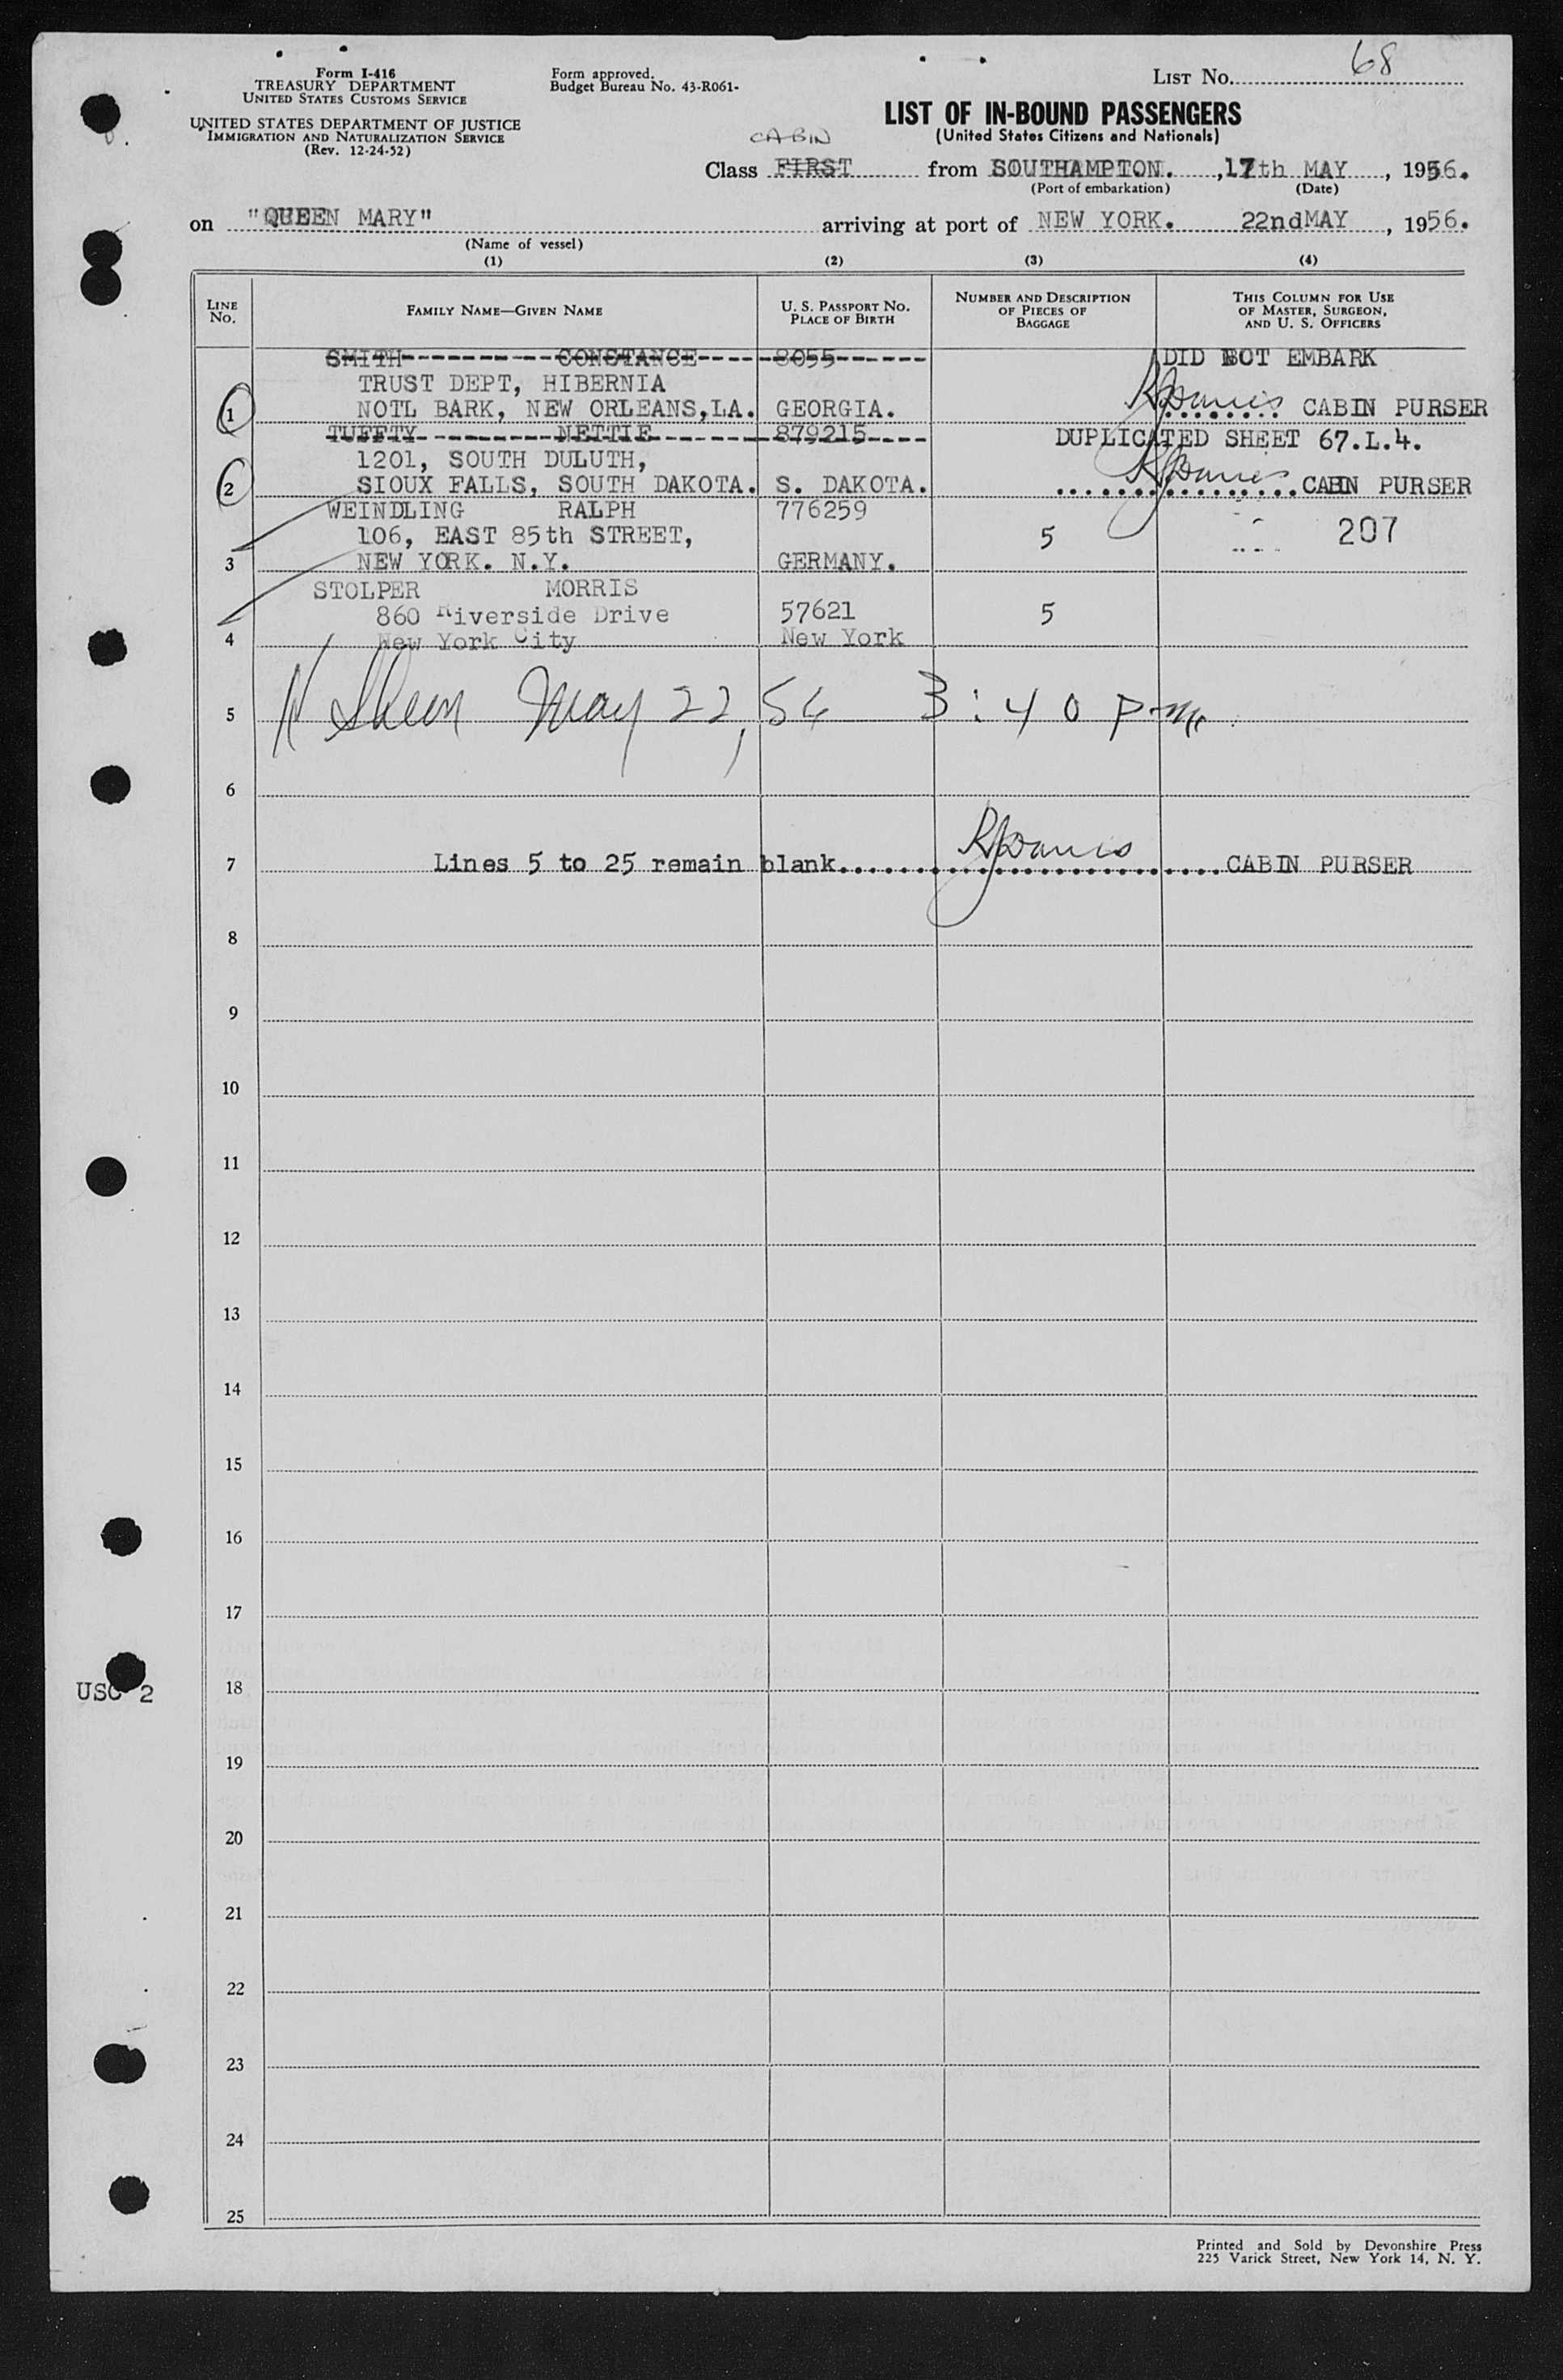 Form I-416
TREASURY DEPARTMENT
UNITED STATES CUSTOMS SERVICE
UNITED STATES DEPARTMENT OF JUSTICE
IMMIGRATION AND NATURALIZATION SERVICE
(Rev. 12-24-52)
Form approved.
Budget Bureau No. 43-R061-
LIST No. 68
LIST OF IN-BOUND PASSENGERS
(United States Citizens and Nationals)
CABIN
Class FIRST from SOUTHAMPTON. , 17th MAY , 1956.
(Port of embarkation) (Date)
on "QUEEN MARY" arriving at port of NEW YORK. 22nd MAY , 1956.
(Name of vessel)
(1) (2) (3) (4)
LINE No. FAMILY NAME—GIVEN NAME U. S. PASSPORT NO. PLACE OF BIRTH NUMBER AND DESCRIPTION OF PIECES OF BAGGAGE THIS COLUMN FOR USE OF MASTER, SURGEON, AND U. S. OFFICERS
SMITH CONSTANCE 8055 DID NOT EMBARK
TRUST DEPT, HIBERNIA
1 NOTL BARK, NEW ORLEANS, LA. GEORGIA. RJDavies CABIN PURSER
TUFFTY NETTIE 879215 DUPLICATED SHEET 67.L.4.
1201, SOUTH DULUTH,
2 SIOUX FALLS, SOUTH DAKOTA. S. DAKOTA. RJDavies CABIN PURSER
WEINDLING RALPH 776259
106, EAST 85th STREET, 5 207
3 NEW YORK. N.Y. GERMANY.
STOLPER MORRIS
860 Riverside Drive 57621 5
4 New York City New York
5 May 22, 56 3:40 pm.
6
7 Lines 5 to 25 remain blank RJDavies CABIN PURSER
8
9
10
11
12
13
14
15
16
17
USC 2
18
19
20
21
22
23
24
25
Printed and Sold by Devonshire Press
225 Varick Street, New York 14, N. Y.